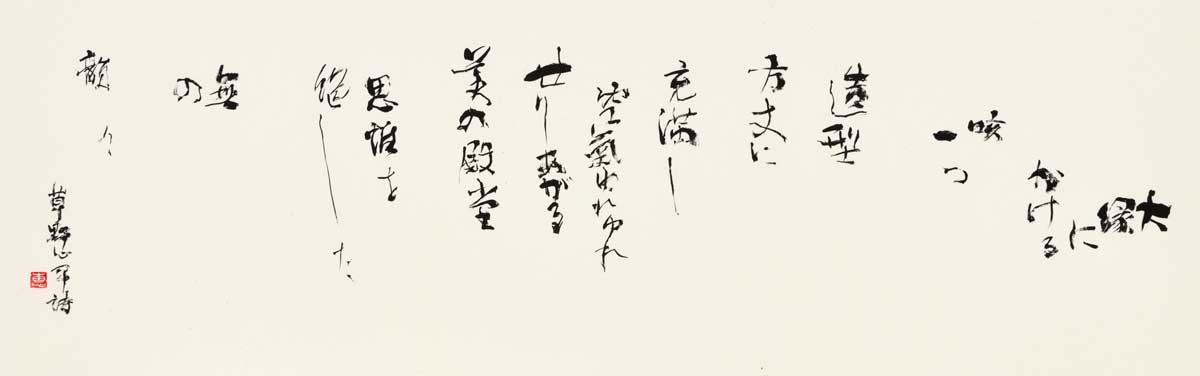 大縁に
かける
咳
一つ
方丈に
充満し
空氣ゆれゆれ
せり がる
美の殿堂
思惟を
絶した
無
の
草野心平詩